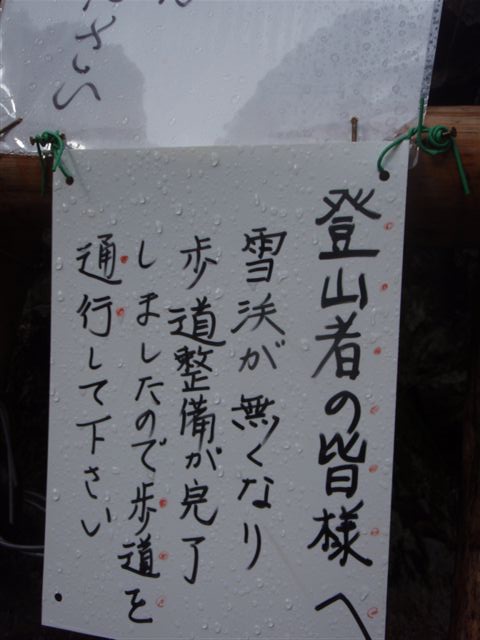 さい
登山者の皆様へ
雪渓が無くなり
歩道整備が完了
しましたので歩道を
通行して下さい